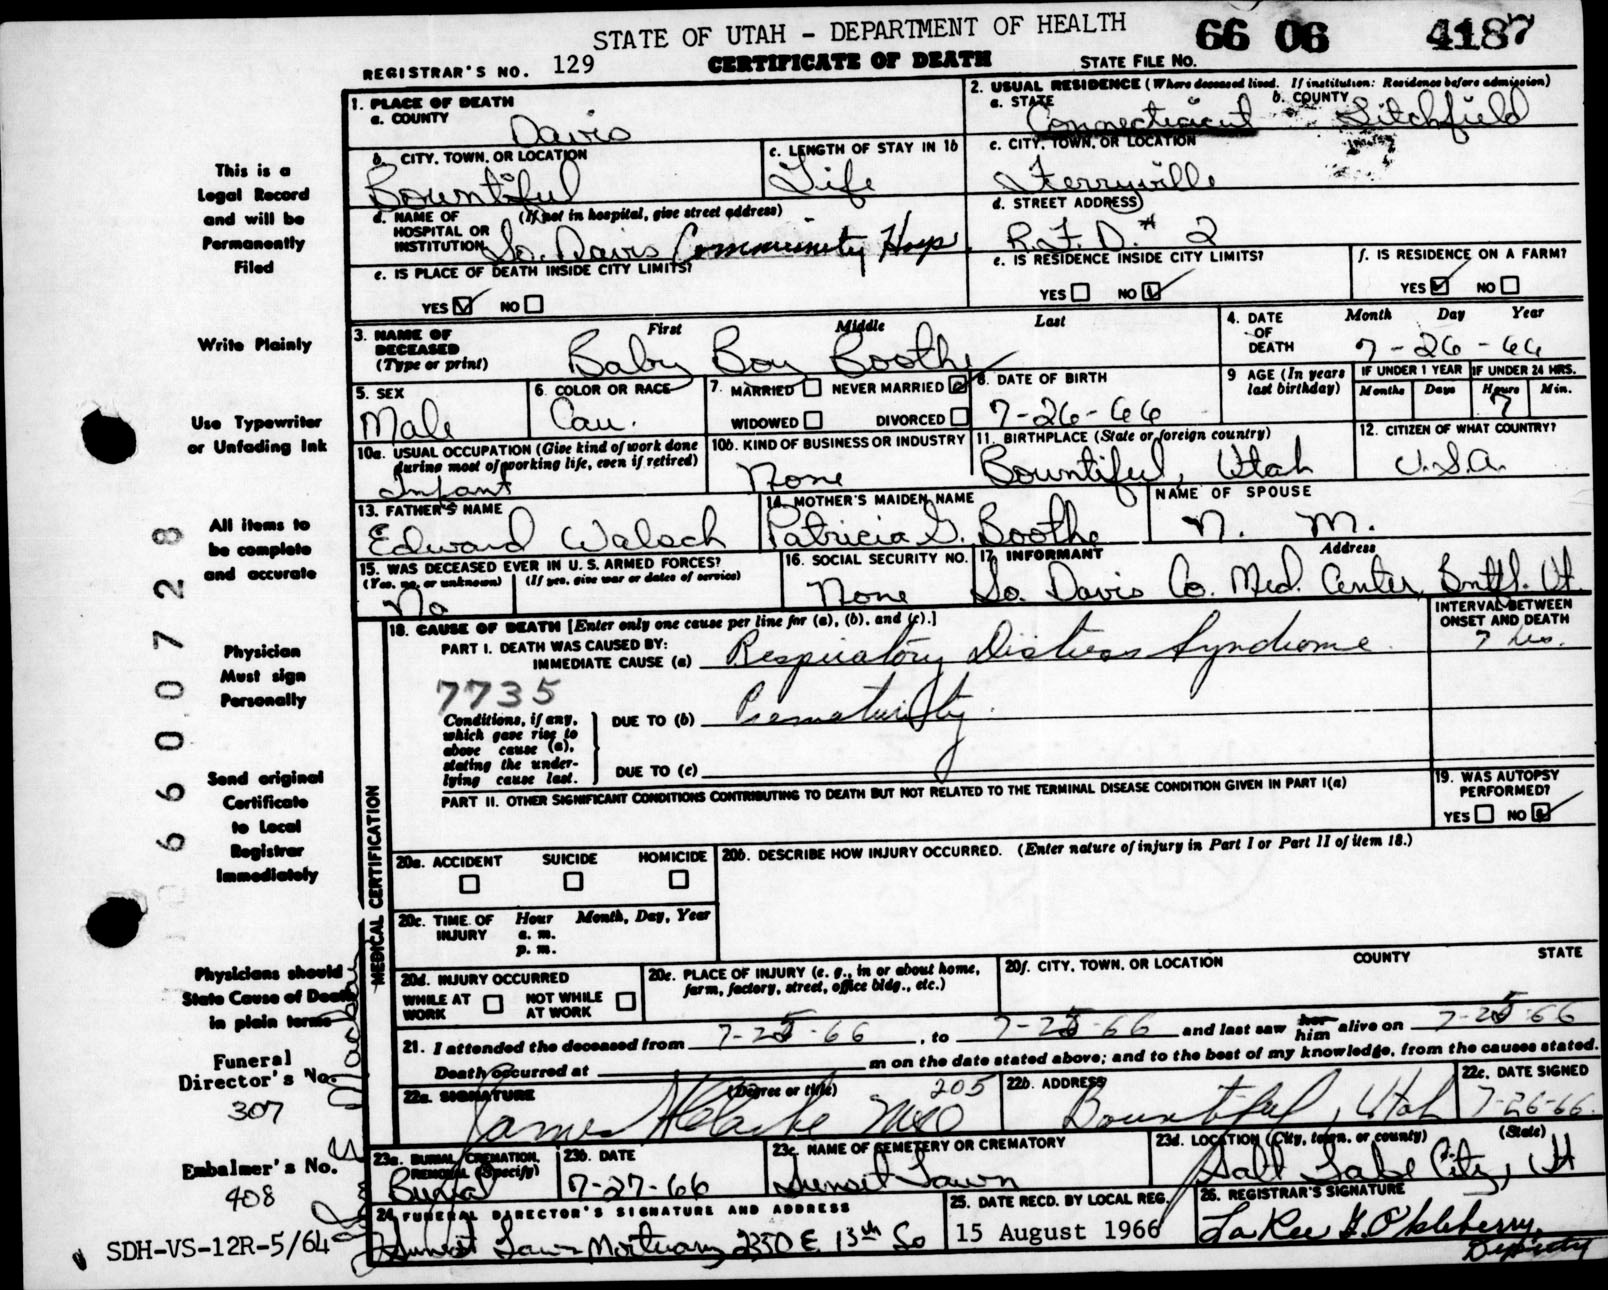 STATE OF UTAH - DEPARTMENT OF HEALTH 66 06 4187
REGISTRAR'S NO. 129 CERTIFICATE OF DEATH STATE FILE NO.
This is a
Legal Record
and will be
Permanently
Filed
Write Plainly
Use Typewriter
or Unfading Ink
All items to
be complete
and accurate
Physician
Must sign
Personally
Send original
Certificate
to Local
Registrar
Immediately
Physicians should
State Cause of Death
in plain terms
Funeral
Director's No.
307
Embalmer's No.
408
SDH-VS-12R-5/64
6600728
1. PLACE OF DEATH
a. COUNTY
Davis
2. USUAL RESIDENCE (Where deceased lived. If institution: Residence before admission)
a. STATE Connecticut b. COUNTY Litchfield
b. CITY, TOWN, OR LOCATION
Bountiful
c. LENGTH OF STAY IN 1b
Life
c. CITY, TOWN, OR LOCATION
Terryville
d. NAME OF HOSPITAL OR INSTITUTION (If not in hospital, give street address)
So. Davis Community Hosp.
d. STREET ADDRESS
R.F.D. # 2
e. IS PLACE OF DEATH INSIDE CITY LIMITS?
YES NO
e. IS RESIDENCE INSIDE CITY LIMITS?
YES NO
f. IS RESIDENCE ON A FARM?
YES NO
3. NAME OF DECEASED (Type or print)
First Middle Last
Baby Boy Boothe
4. DATE OF DEATH
Month Day Year
7-26-66
5. SEX
Male
6. COLOR OR RACE
Cau.
7. MARRIED NEVER MARRIED
WIDOWED DIVORCED
8. DATE OF BIRTH
7-26-66
9 AGE (In years last birthday)
IF UNDER 1 YEAR IF UNDER 24 HRS.
Months Days Hours Min.
7
10a. USUAL OCCUPATION (Give kind of work done during most of working life, even if retired)
Infant
10b. KIND OF BUSINESS OR INDUSTRY
None
11. BIRTHPLACE (State or foreign country)
Bountiful, Utah
12. CITIZEN OF WHAT COUNTRY?
U.S.A.
13. FATHER'S NAME
Edward Walach
14. MOTHER'S MAIDEN NAME
Patricia G. Boothe
NAME OF SPOUSE
N. M.
15. WAS DECEASED EVER IN U. S. ARMED FORCES?
(Yes, no, or unknown) (If yes, give war or dates of service)
No
16. SOCIAL SECURITY NO.
None
17. INFORMANT Address
So. Davis Co. Med. Center, Bntfl. Ut.
MEDICAL CERTIFICATION
18. CAUSE OF DEATH [Enter only one cause per line for (a), (b), and (c).]
INTERVAL BETWEEN ONSET AND DEATH
PART I. DEATH WAS CAUSED BY:
IMMEDIATE CAUSE (a) Respiratory Distress Syndrome 7 hrs.
7735
Conditions, if any, which gave rise to above cause (a), stating the underlying cause last.
DUE TO (b) Prematurity
DUE TO (c)
PART II. OTHER SIGNIFICANT CONDITIONS CONTRIBUTING TO DEATH BUT NOT RELATED TO THE TERMINAL DISEASE CONDITION GIVEN IN PART I(a)
19. WAS AUTOPSY PERFORMED?
YES NO
20a. ACCIDENT SUICIDE HOMICIDE
20b. DESCRIBE HOW INJURY OCCURRED. (Enter nature of injury in Part I or Part II of item 18.)
20c. TIME OF INJURY Hour Month, Day, Year
a. m.
p. m.
20d. INJURY OCCURRED
WHILE AT WORK NOT WHILE AT WORK
20e. PLACE OF INJURY (e. g., in or about home, farm, factory, street, office bldg., etc.)
20f. CITY, TOWN, OR LOCATION COUNTY STATE
21. I attended the deceased from 7-25-66, to 7-25-66 and last saw her him alive on 7-25-66
Death occurred at m on the date stated above; and to the best of my knowledge, from the causes stated.
22a. SIGNATURE (Degree or title) 205
James H Clarke MD
22b. ADDRESS
Bountiful, Utah
22c. DATE SIGNED
7-26-66
23a. BURIAL, CREMATION, REMOVAL (Specify)
Burial
23b. DATE
7-27-66
23c. NAME OF CEMETERY OR CREMATORY
Sunset Lawn
23d. LOCATION (City, town, or county) (State)
Salt Lake City, Ut
24 FUNERAL DIRECTOR'S SIGNATURE AND ADDRESS
Sunset Lawn Mortuary 2350 E. 13th So
25. DATE RECD. BY LOCAL REG.
15 August 1966
26. REGISTRAR'S SIGNATURE
Deputy